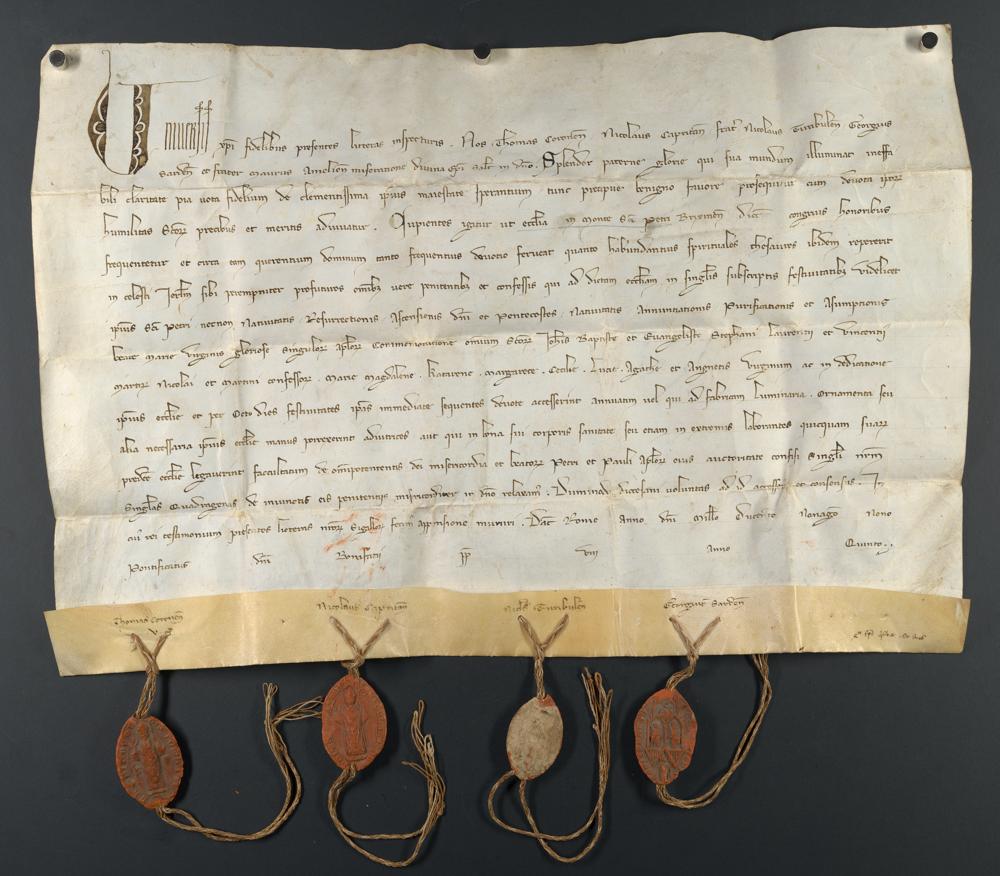 Universis xpi fidelibus presentes litteras inspecturis. Nos Thomas Coronen Nicolaus Capritan frater Nicolaus Turibulen Georgius
Sarden et frater Maurus Amelien miseratione divina epi Salt in dno. Splendor paterne glorie qui sua mundum illuminat ineffa
bili claritate pia vota fidelium de clementissima ipius maiestate sperantium tunc precipue benigno favore prosequitur cum devota ipor
humilitas Scor precibus et meritis adiuvatur. Cupientes igitur ut ecclia in monte Sci Petri dict congruis honoribus
frequentetur et circa eam querentium dominum tanto frequentius devotio ferveat quanto habundantius spirituales thesauros ibidem repererit
in celesti Ierlm sibi perempniter profuturos omnibz vere penitentibz et confessis qui ad dictam eccliam in singlis subscriptis festivitatibz videlicet
ipius Sci Petri necnon Nativitatis Resurrectionis Ascensionis dni et Pentecostes. Nativitatis Annuntiationis Purificationis et Asumptionis
beate Marie virginis gloriose Singulor aplor Commemoratione omium Scor Iohis Baptiste et Evangeliste Stephani Laurentii et vincentii
martir Nicolai et Martini confessor. Marie Magdalene. Katerine. Margarete. Cecilie. Lucie. Agathe et Angnetis virginum ac in dedicatione
ipius ecclie et per Octo dies festivitates ipas immediate sequentes devote accesserint annuatim vel qui ad fabricam luminaria. Ornamenta seu
alia necessaria ipius ecclie manus porrexerint adiutrices aut qui in bona sui corporis sanitate seu etiam in extremis laborantes quicquam suar
predce ecclie legaverint facultatum de omipotentis dei misericordia et beator Petri et Pauli Aplor eius auctoritate confisi Singli nrm
Singlas Quadragenas de iniunctis eis penitentiis misericorditer in dno relaxam. Dummodo diocesani voluntas ad id accesserit et consensus. In
cui rei testimonium presentes litteras nror Sigillor fecim appensione muniri. Dat Rome anno dni Millo Ducento Nonago Nono
Pontificatus dni Bonifatii pp viii anno Quinto.
Thomas Coronen
Nicolaus Capritan
Nicls Turibulen
Georgius Sarden